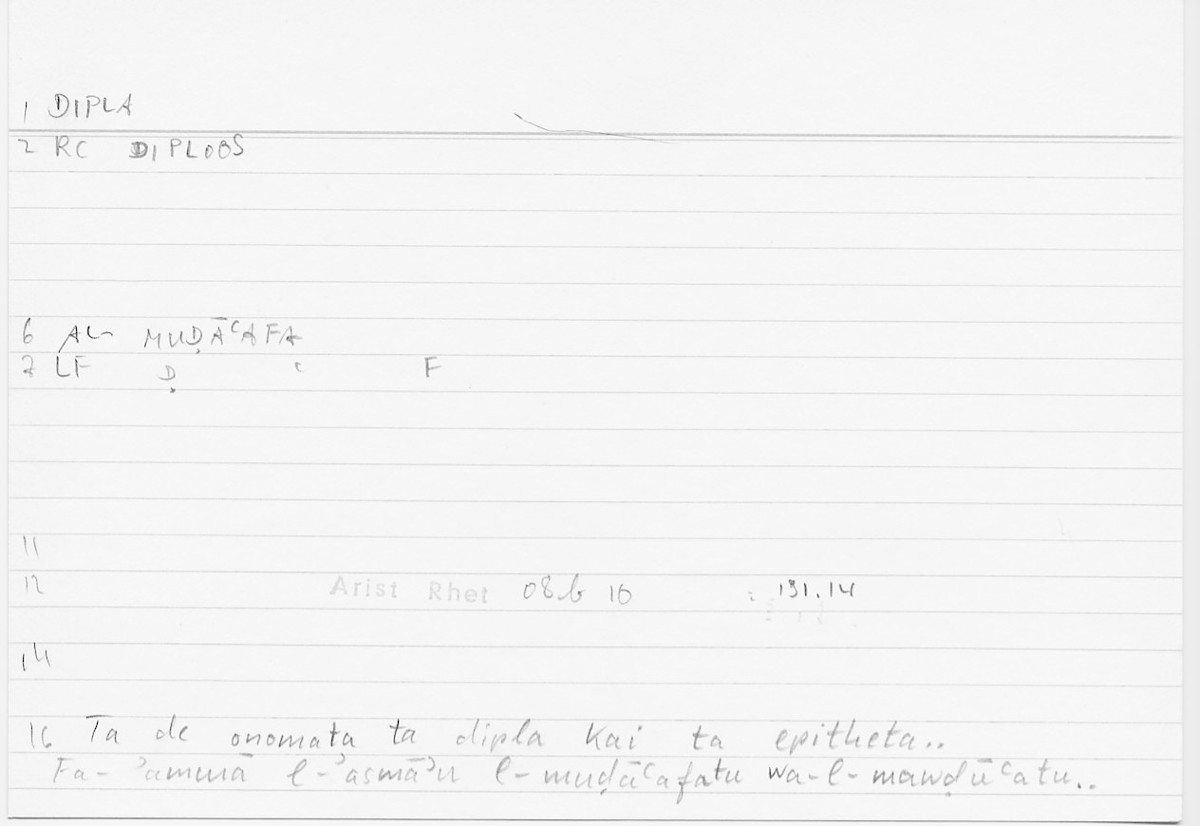 1 DIPLA
2 RC DIPLOOS
6 AL- MUḌĀʿAFA
7 LF Ḍ ʿ F
11
12 Arist Rhet 08b 10 : 131.14
14
16 Ta de onomata ta dipla kai ta epitheta..
Fa- ʾammā l-ʾasmāʾu l-muḍāʿafatu wa-l-mawḍūʿatu..